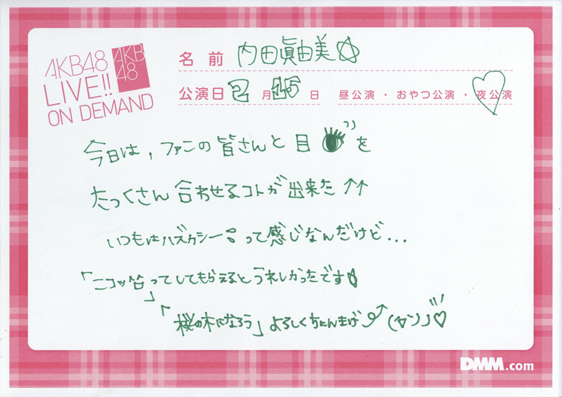 AKB48
LIVE!!
ON DEMAND
AKB
48
名前 内田眞由美☆
公演日 2月 日 昼公演・おやつ公演・夜公演
今日は，ファンの皆さんと目を
たっくさん合わせるコトが出来た↑↑
いつもはハズカシー。って感じなんだけど...
「ニコッ」ってしてもらえるとうれしかったです
「桜の木になろう」よろしくちょんまげ
DMM.com